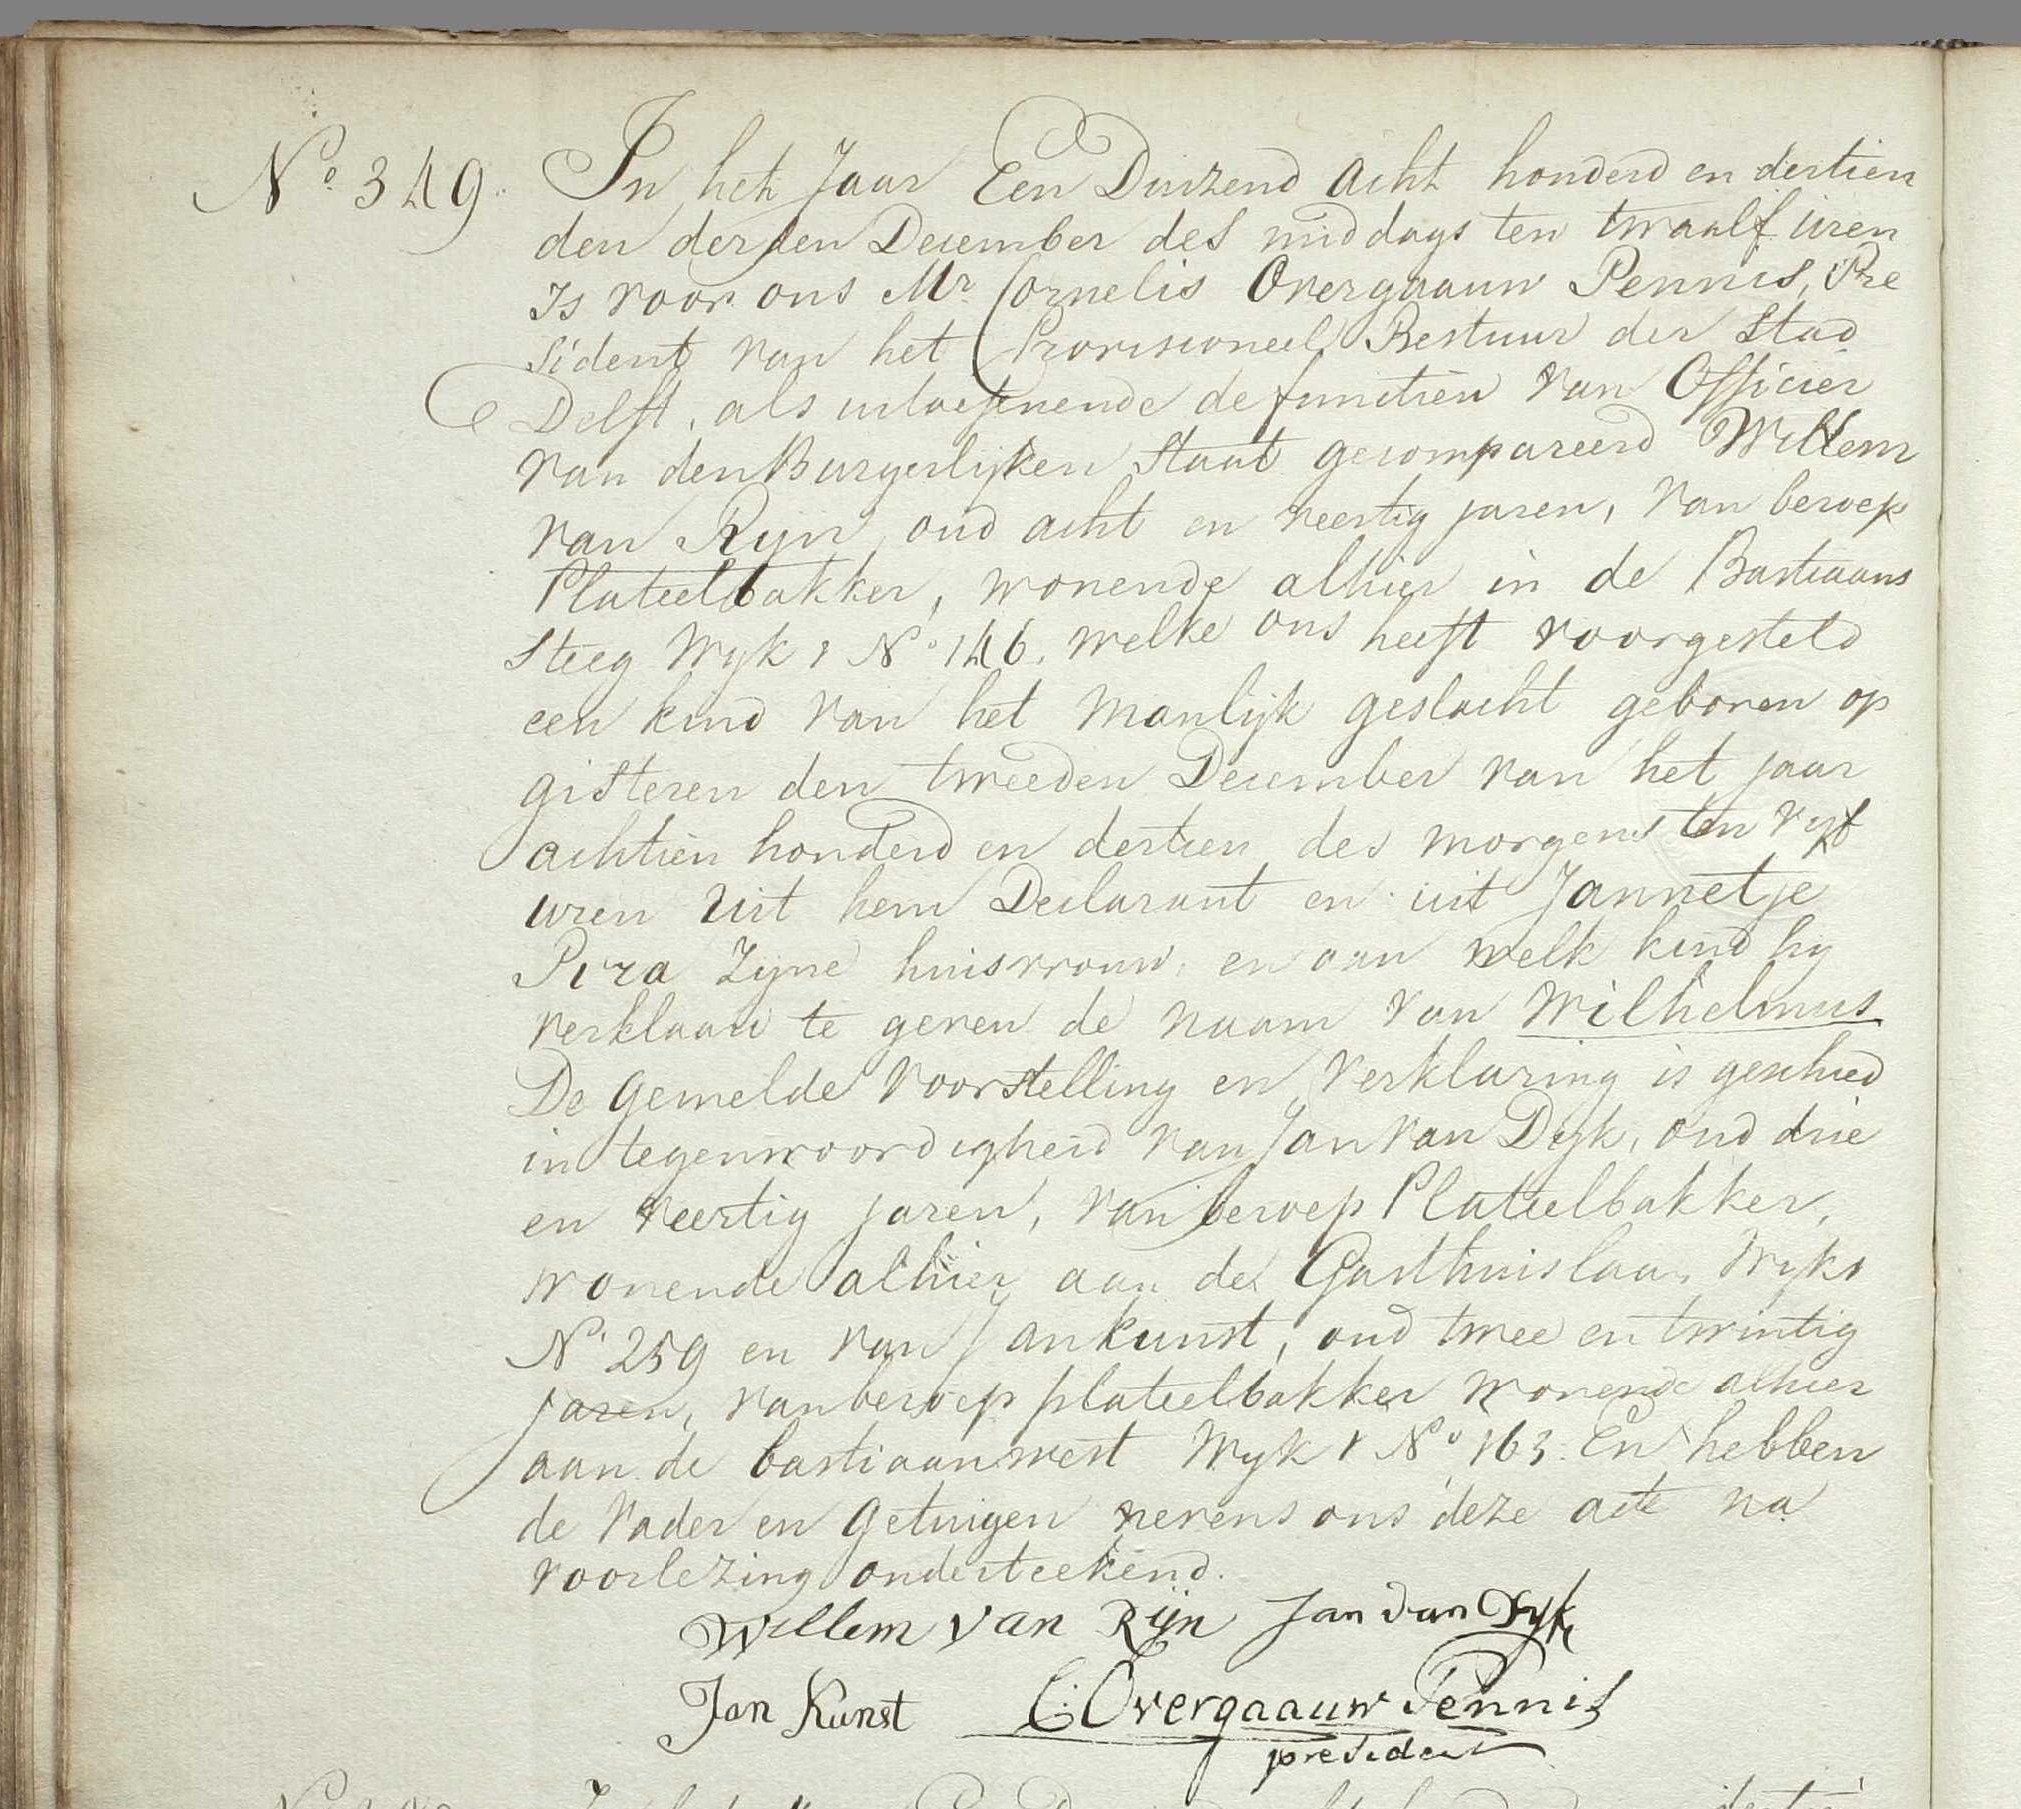 No. 349. In het Jaar Een Duizend Acht honderd en dertien
den derden December des middags ten twaalf uren
Is voor ons Mr. Cornelis Overgaauw Pennis, Pre
sident van het Provisioneel Bestuur der Stad
Delft, als uitoefenende de functien van Officier
van den Burgerlijken Staat gecompareerd Willem
van Rijn, oud acht en veertig jaren, van beroep
Plateelbakker, wonende alhier in de Bastiaans
steeg Wyk 1 No. 146. welke ons heeft voorgesteld
een kind van het Manlijk geslacht geboren op
gisteren den tweeden December van het jaar
achtien honderd en dertien des morgens ten vyf
uren uit hem Declarant en uit Jannetje
Piza Zyne huisvrouw, en aan welk kind hy
verklaard te geven de naam van Wilhelmus
De gemelde voorstelling en verklaring is geschied
in tegenwoordigheid van Jan van Dyk, oud drie
en veertig jaren, van beroep Plateelbakker,
wonende alhier aan de Gasthuislaan Wyk 1
No 259 en van Jan Kunst, oud twee en twintig
jaren, van beroep plateelbakker wonende alhier
aan de bastiaansvest Wyk 1 No 163. En hebben
de Vader en Getuigen nevens ons deze acte na
voorlezing onderteekend.
Willem van Rijn Jan van Dyk
Jan Kunst C: Overgaauw Pennis
president